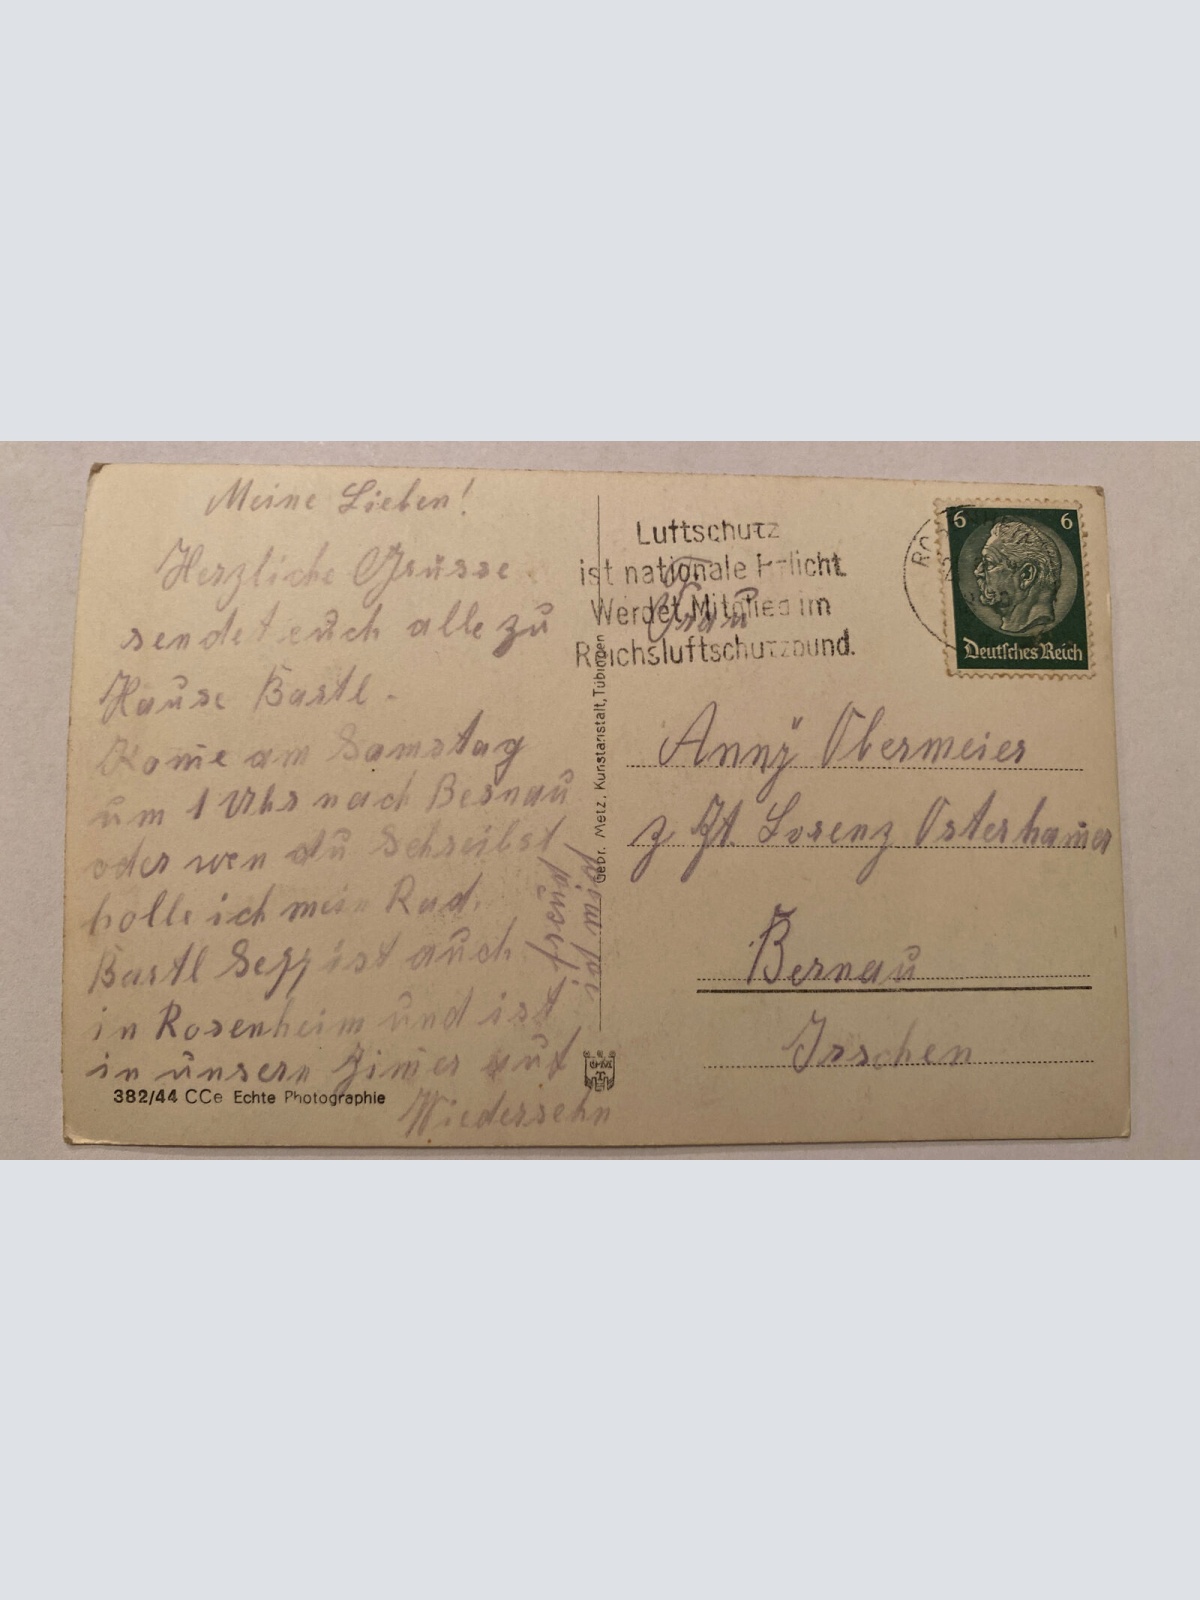 Meine Lieben!
Herzliche Grüsse
sendet euch alle zu
Hause Bastl.
Kom̄e am Samstag
um 1 Uhr nach Bernau
oder wen du schreibst
holle ich mein Rad.
Bastl Sepp ist auch
in Rosenheim und ist
in unsern Zim̄er auf
Wiedersehn
freud
mid
382/44 CCe Echte Photographie
Gebr. Metz, Kunstanstalt, Tübingen
Luftschutz
ist nationale Pflicht
Werdet Mitglied im
Reichsluftschutzbund.
6 6
Deutsches Reich
Frau
Anny Obermeier
z Zt. Lorenz Osterham̄er
Bernau
Irschen